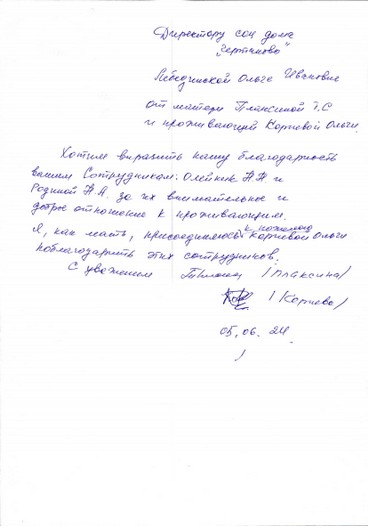 Директору соц дома
"Чертаново"
Лебединской Ольге Ивановне
от матери Плаксиной Т.С
и проживающей Корневой Ольги.
Хотим выразить нашу благодарность
вашим Сотрудникам: Олейник Н.Н и
Родиной Н.А. за их внимательное и
доброе отношение к проживающим.
Я, как мать, присоединяюсь к пожеланию Корневой Ольги
поблагодарить этих сотрудников.
С уважением /Плаксина/
/Корнева/
05.06.24